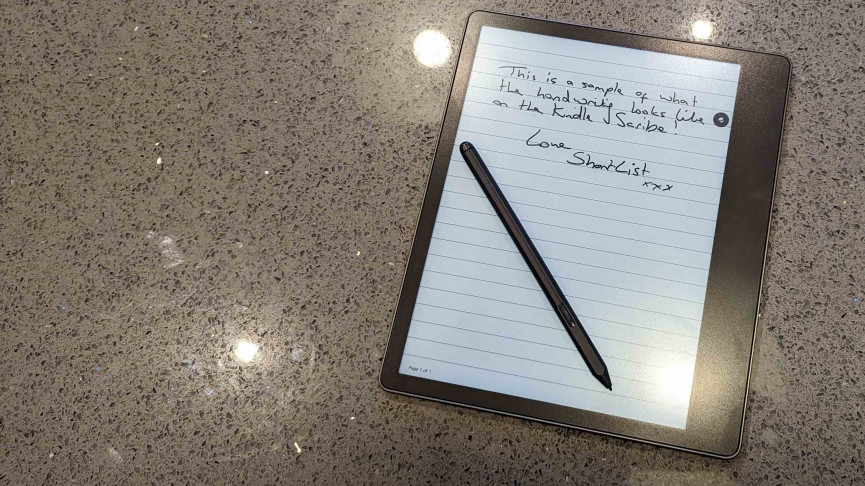 This is a sample of what
the handwriting looks like
on the Kindle Scribe!
Love
ShortList
xxx
Page 1 of 1